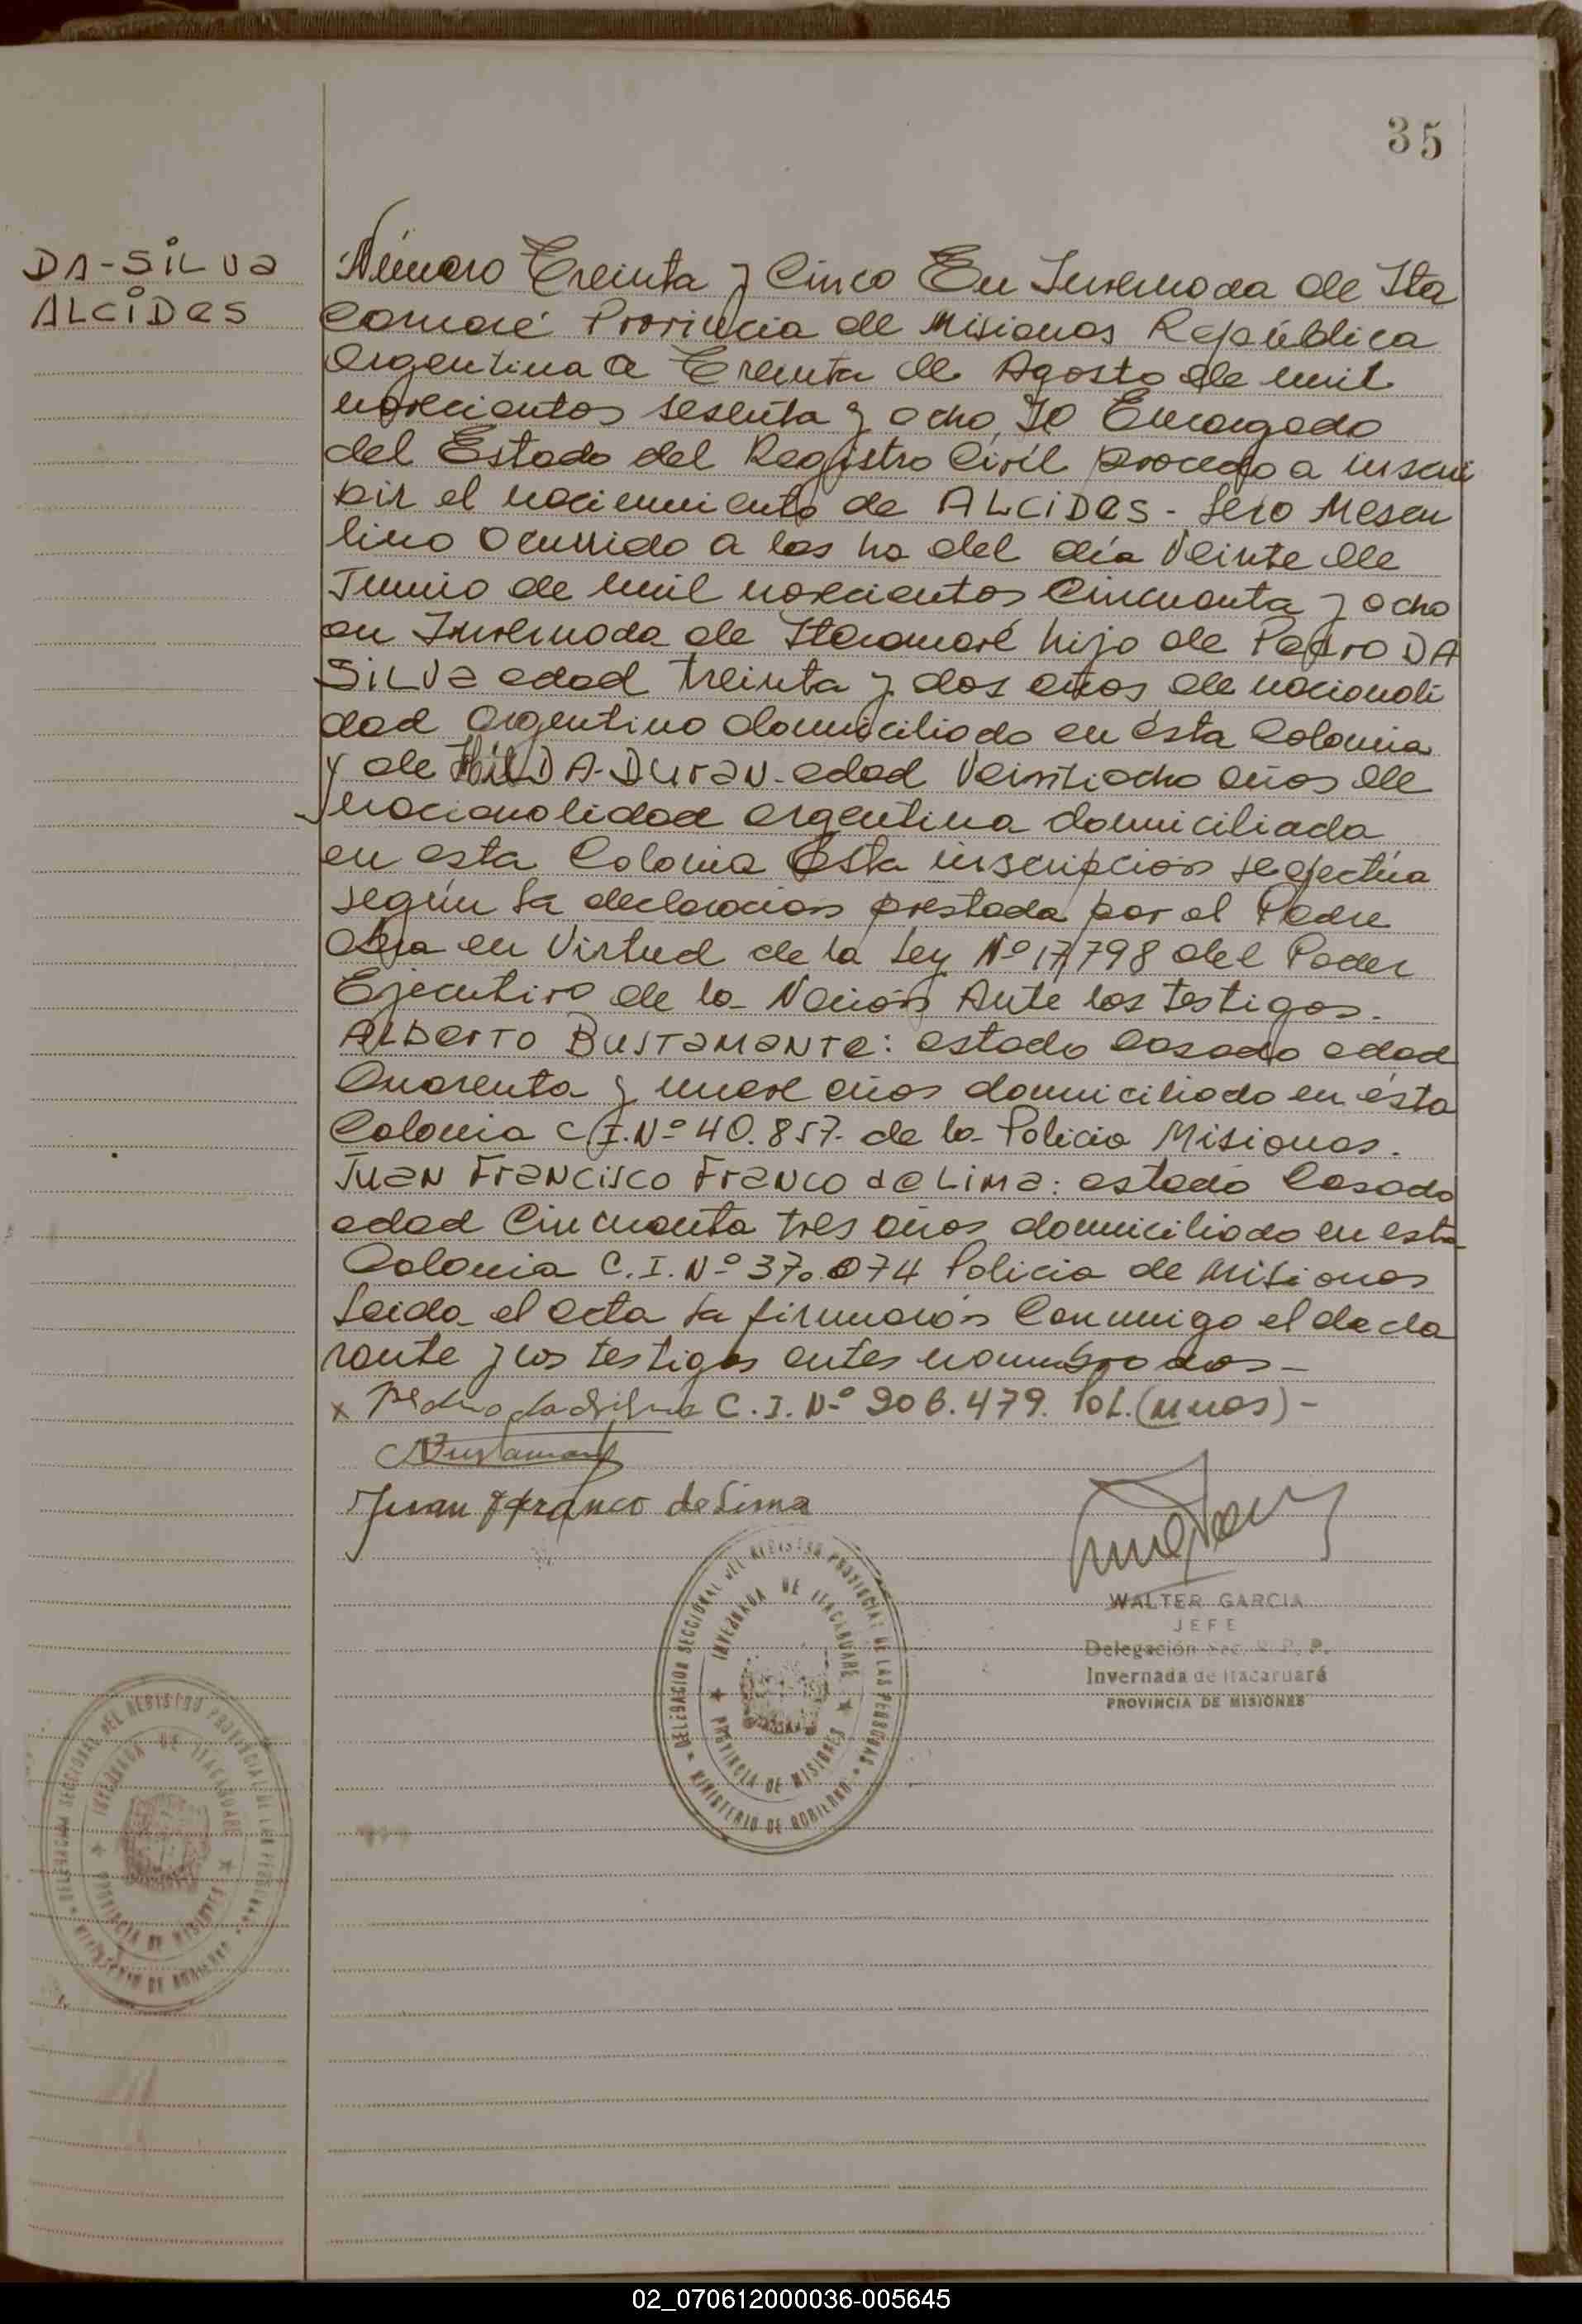 35
DA-SILVA
ALCIDES
Número Treinta y Cinco En Invernada de Ita
Caruaré Provincia de Misiones República
Argentina a Treinta de Agosto de mil
novecientos sesenta y ocho, Yo Encargado
del Estado del Registro Civil procedo a inscri
bir el nacimiento de ALCIDES - Sexo Mascu
lino Ocurrido a las hs del día Veinte de
Junio de mil novecientos Cincuenta y ocho
en Invernada de Itacaruaré hijo de Pedro DA
SILVA edad treinta y dos años de nacionali
dad Argentino domiciliado en ésta Colonia
y de HILDA-DURAN-edad Veintiocho años de
nacionalidad argentina domiciliada
en esta Colonia Esta inscripción se efectúa
según la declaración prestada por el Padre
en Virtud de la Ley Nº 17798 del Poder
Ejecutivo de la Nación Ante los testigos.
ALBERTO BUSTAMANTE: estado casado edad
Cuarenta y nueve años domiciliado en ésta
Colonia C.I. Nº 40.857. de la Policia Misiones.
JUAN FRANCISCO FRANCO de LIMA: estado Casado
edad Cincuenta tres años domiciliado en esta
Colonia C.I. Nº 37.074 Policia de Misiones
Leida el acta la firmaron Conmigo el decla
rante y los testigos antes nombrados-
x Pedro da Silva C.I. Nº 906.479. Pol.(Mnes)-
Bustamante
Juan F Franco de Lima
WALTER GARCIA
JEFE
Delegación Sec. R. P. P.
Invernada de Itacaruaré
PROVINCIA DE MISIONES
DELEGACION SECCIONAL DEL REGISTRO PROVINCIAL DE LAS PERSONAS
INVERNADA DE ITACARUARE
PROVINCIA DE MISIONES
MINISTERIO DE GOBIERNO
DELEGACION SECCIONAL DEL REGISTRO PROVINCIAL DE LAS PERSONAS
INVERNADA DE ITACARUARE
PROVINCIA DE MISIONES
MINISTERIO DE GOBIERNO
02_070612000036-005645